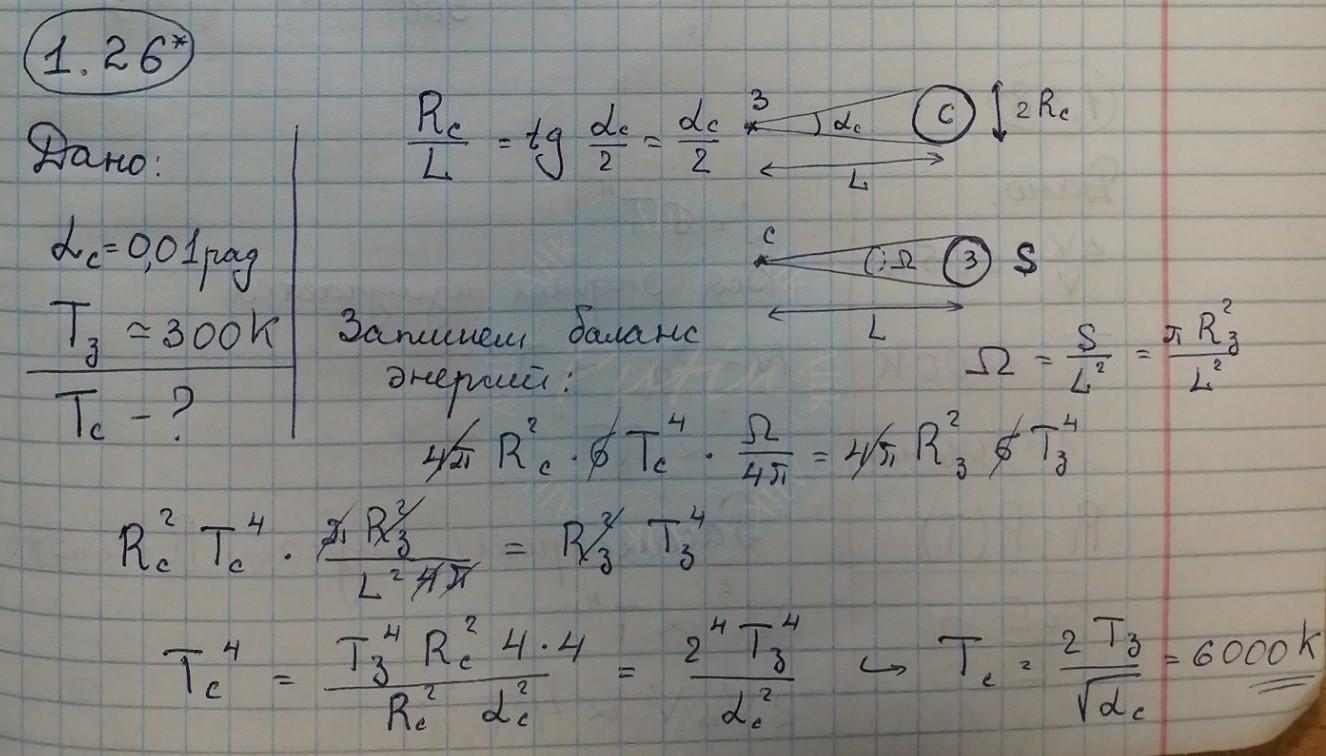 1.26*
Дано:
α_c = 0,01 рад
T_з ≈ 300 K
T_c - ?
R_c / L = tg α_c / 2 = α_c / 2
З α_c C 2R_c
L
C Ω З S
L
Ω = S / L² = π R_з² / L²
Запишем баланс
энергий:
4π R_c² · σ T_c⁴ · Ω / 4π = 4π R_з² σ T_з⁴
R_c² T_c⁴ · π R_з² / L² 4π = R_з² T_з⁴
T_c⁴ = T_з⁴ R_c² 4·4 / R_c² α_c² = 2⁴ T_з⁴ / α_c² ↪ T_c = 2 T_з / √α_c = 6000 K